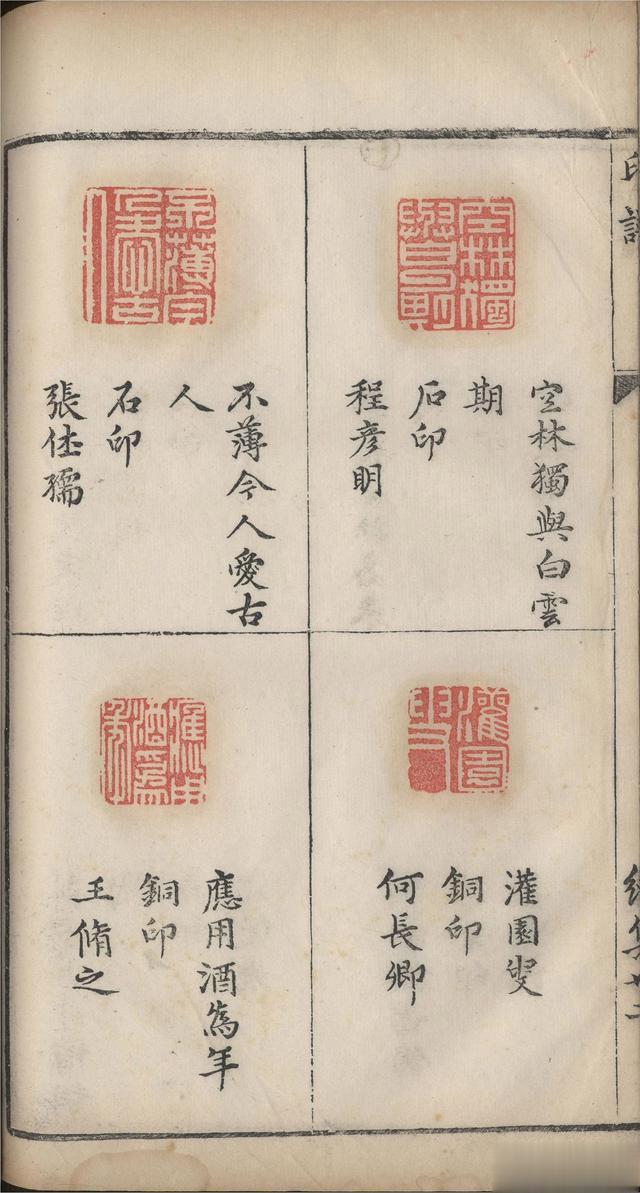 空林獨與白雲
期
石印
程彦明
不薄今人愛古
人
石印
張休孺
灌園叟
銅印
何長卿
應用酒為年
銅印
王脩之